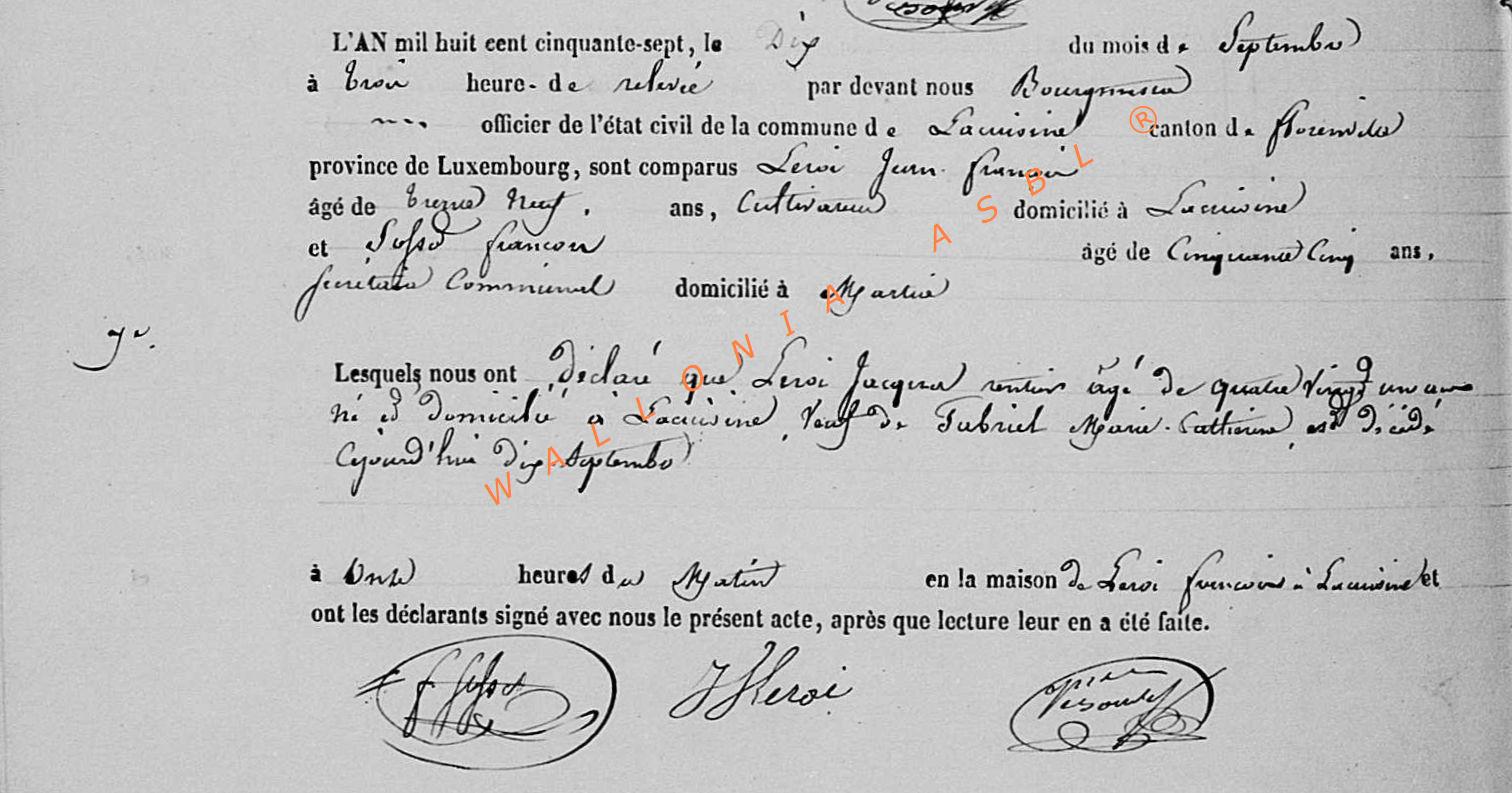 L'AN mil huit cent cinquante-sept, le Dix du mois de Septembre
à trois heure de relevée par devant nous Bourgmestre
officier de l'état civil de la commune de Lacuisine canton de florenville
province de Luxembourg, sont comparus Leroi Jean françois
âgé de trente Neuf ans, Cultivateur domicilié à Lacuisine
et françois âgé de Cinquante Cinq ans,
secrétaire Communal domicilié à Martué
Lesquels nous ont déclaré que Leroi Jacques rentier âgé de quatre vingt un ans
né et domicilié à Lacuisine, veuf de Marie Catherine, est décédé
cejourd'hui dix septembre
à onze heures du Matin en la maison de Leroi françois à Lacuisine et
ont les déclarants signé avec nous le présent acte, après que lecture leur en a été faite.
JfLeroi
WALLONIA ASBL ®